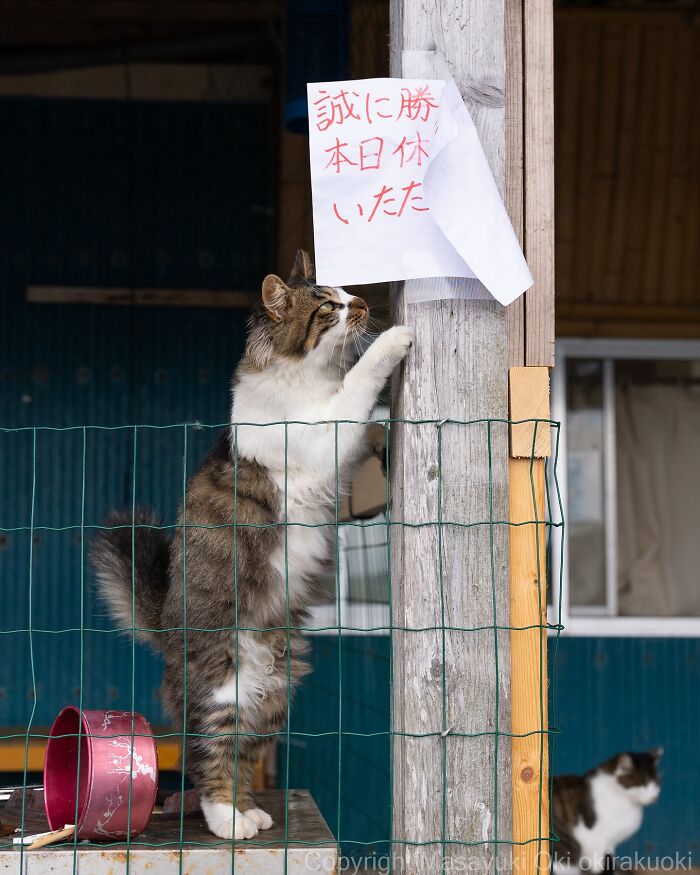 誠に勝
本日休
いたた
Copyright Masayuki Oki okirakuoki